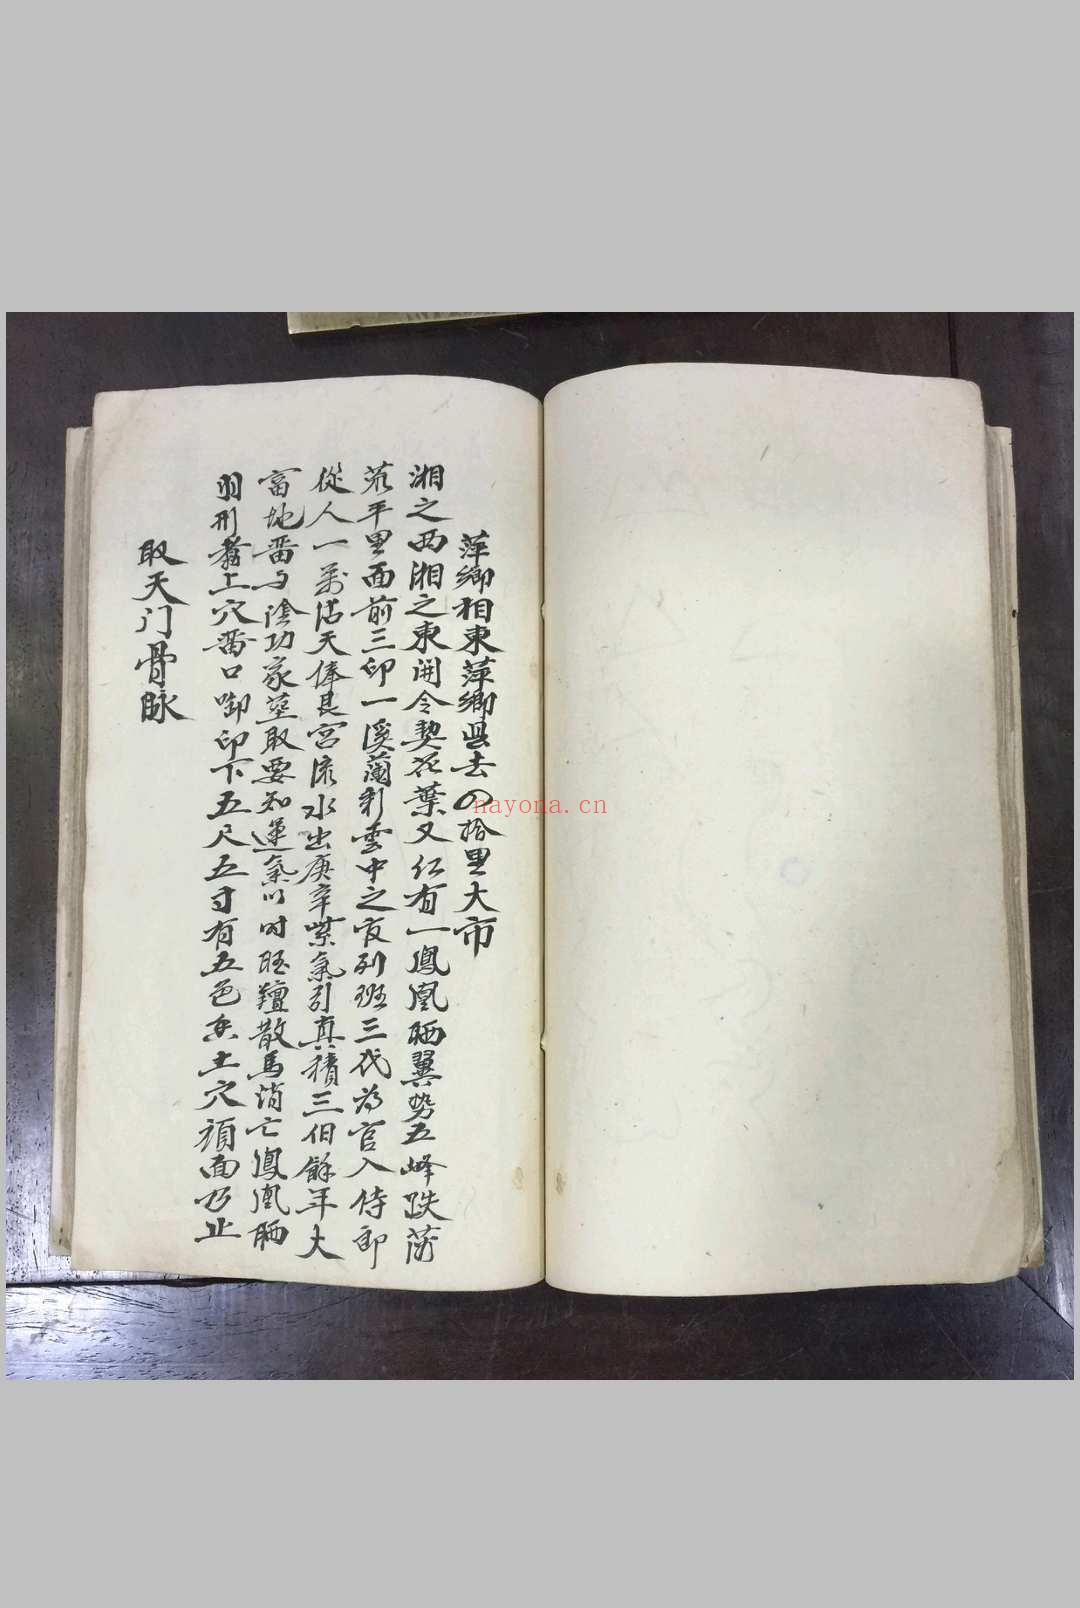 萍鄉相東萍鄉县去四拾里大市
湘之西湘之東開令契花葉又仁有一鳳凰晒翼势五峰跌落
荒平里面前三印一溪蘭彩雲中之官列班三代为官入侍郎
從人一萬活天俸艮宮流水出庚辛紫氣引真積三佰餘年大
富地畨与陰功家塟取要知運氣以时旺羶散馬消亡鳳凰晒
羽刑翥上穴畨口啣印下五尺五寸有五色土穴須面乃止
取天门骨脉
nayona.cn